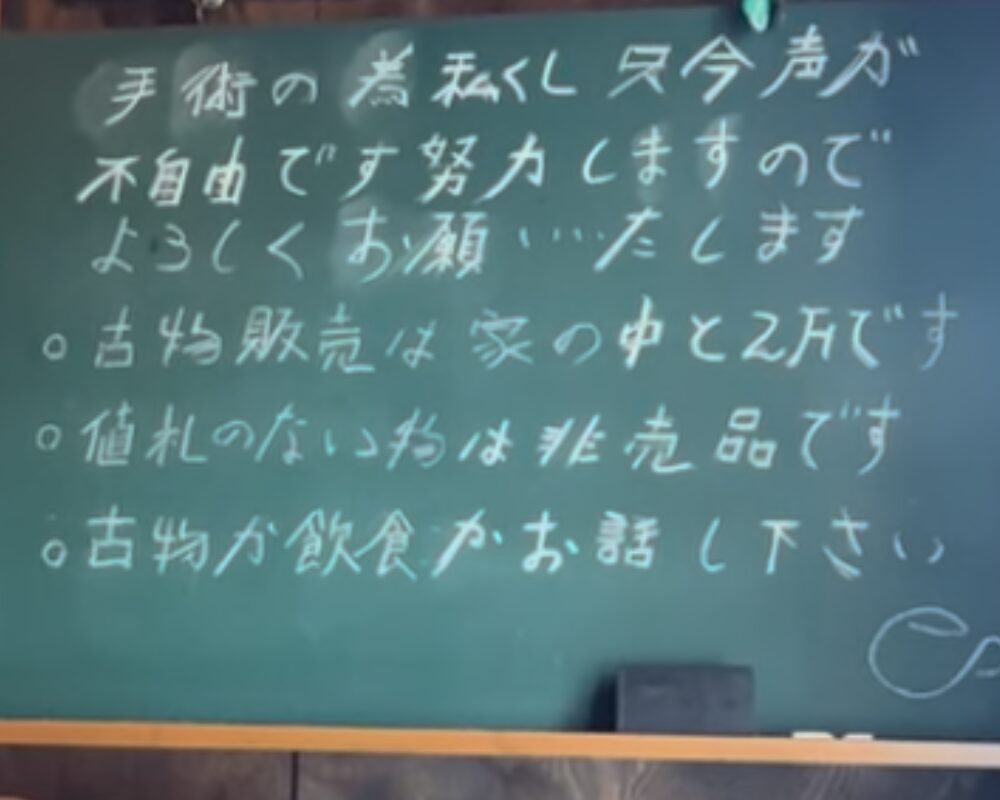 手術の為私くし只今声が
不自由です努力しますので
よろしくお願いいたします
○古物販売は家の中と2万です
○値札のない物は非売品です
○古物か飲食かお話し下さい